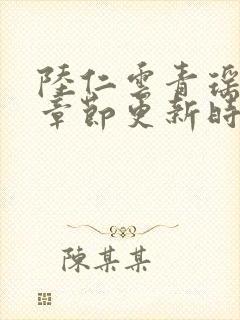 陸仁雲青瑶
章節更新時
陳某某